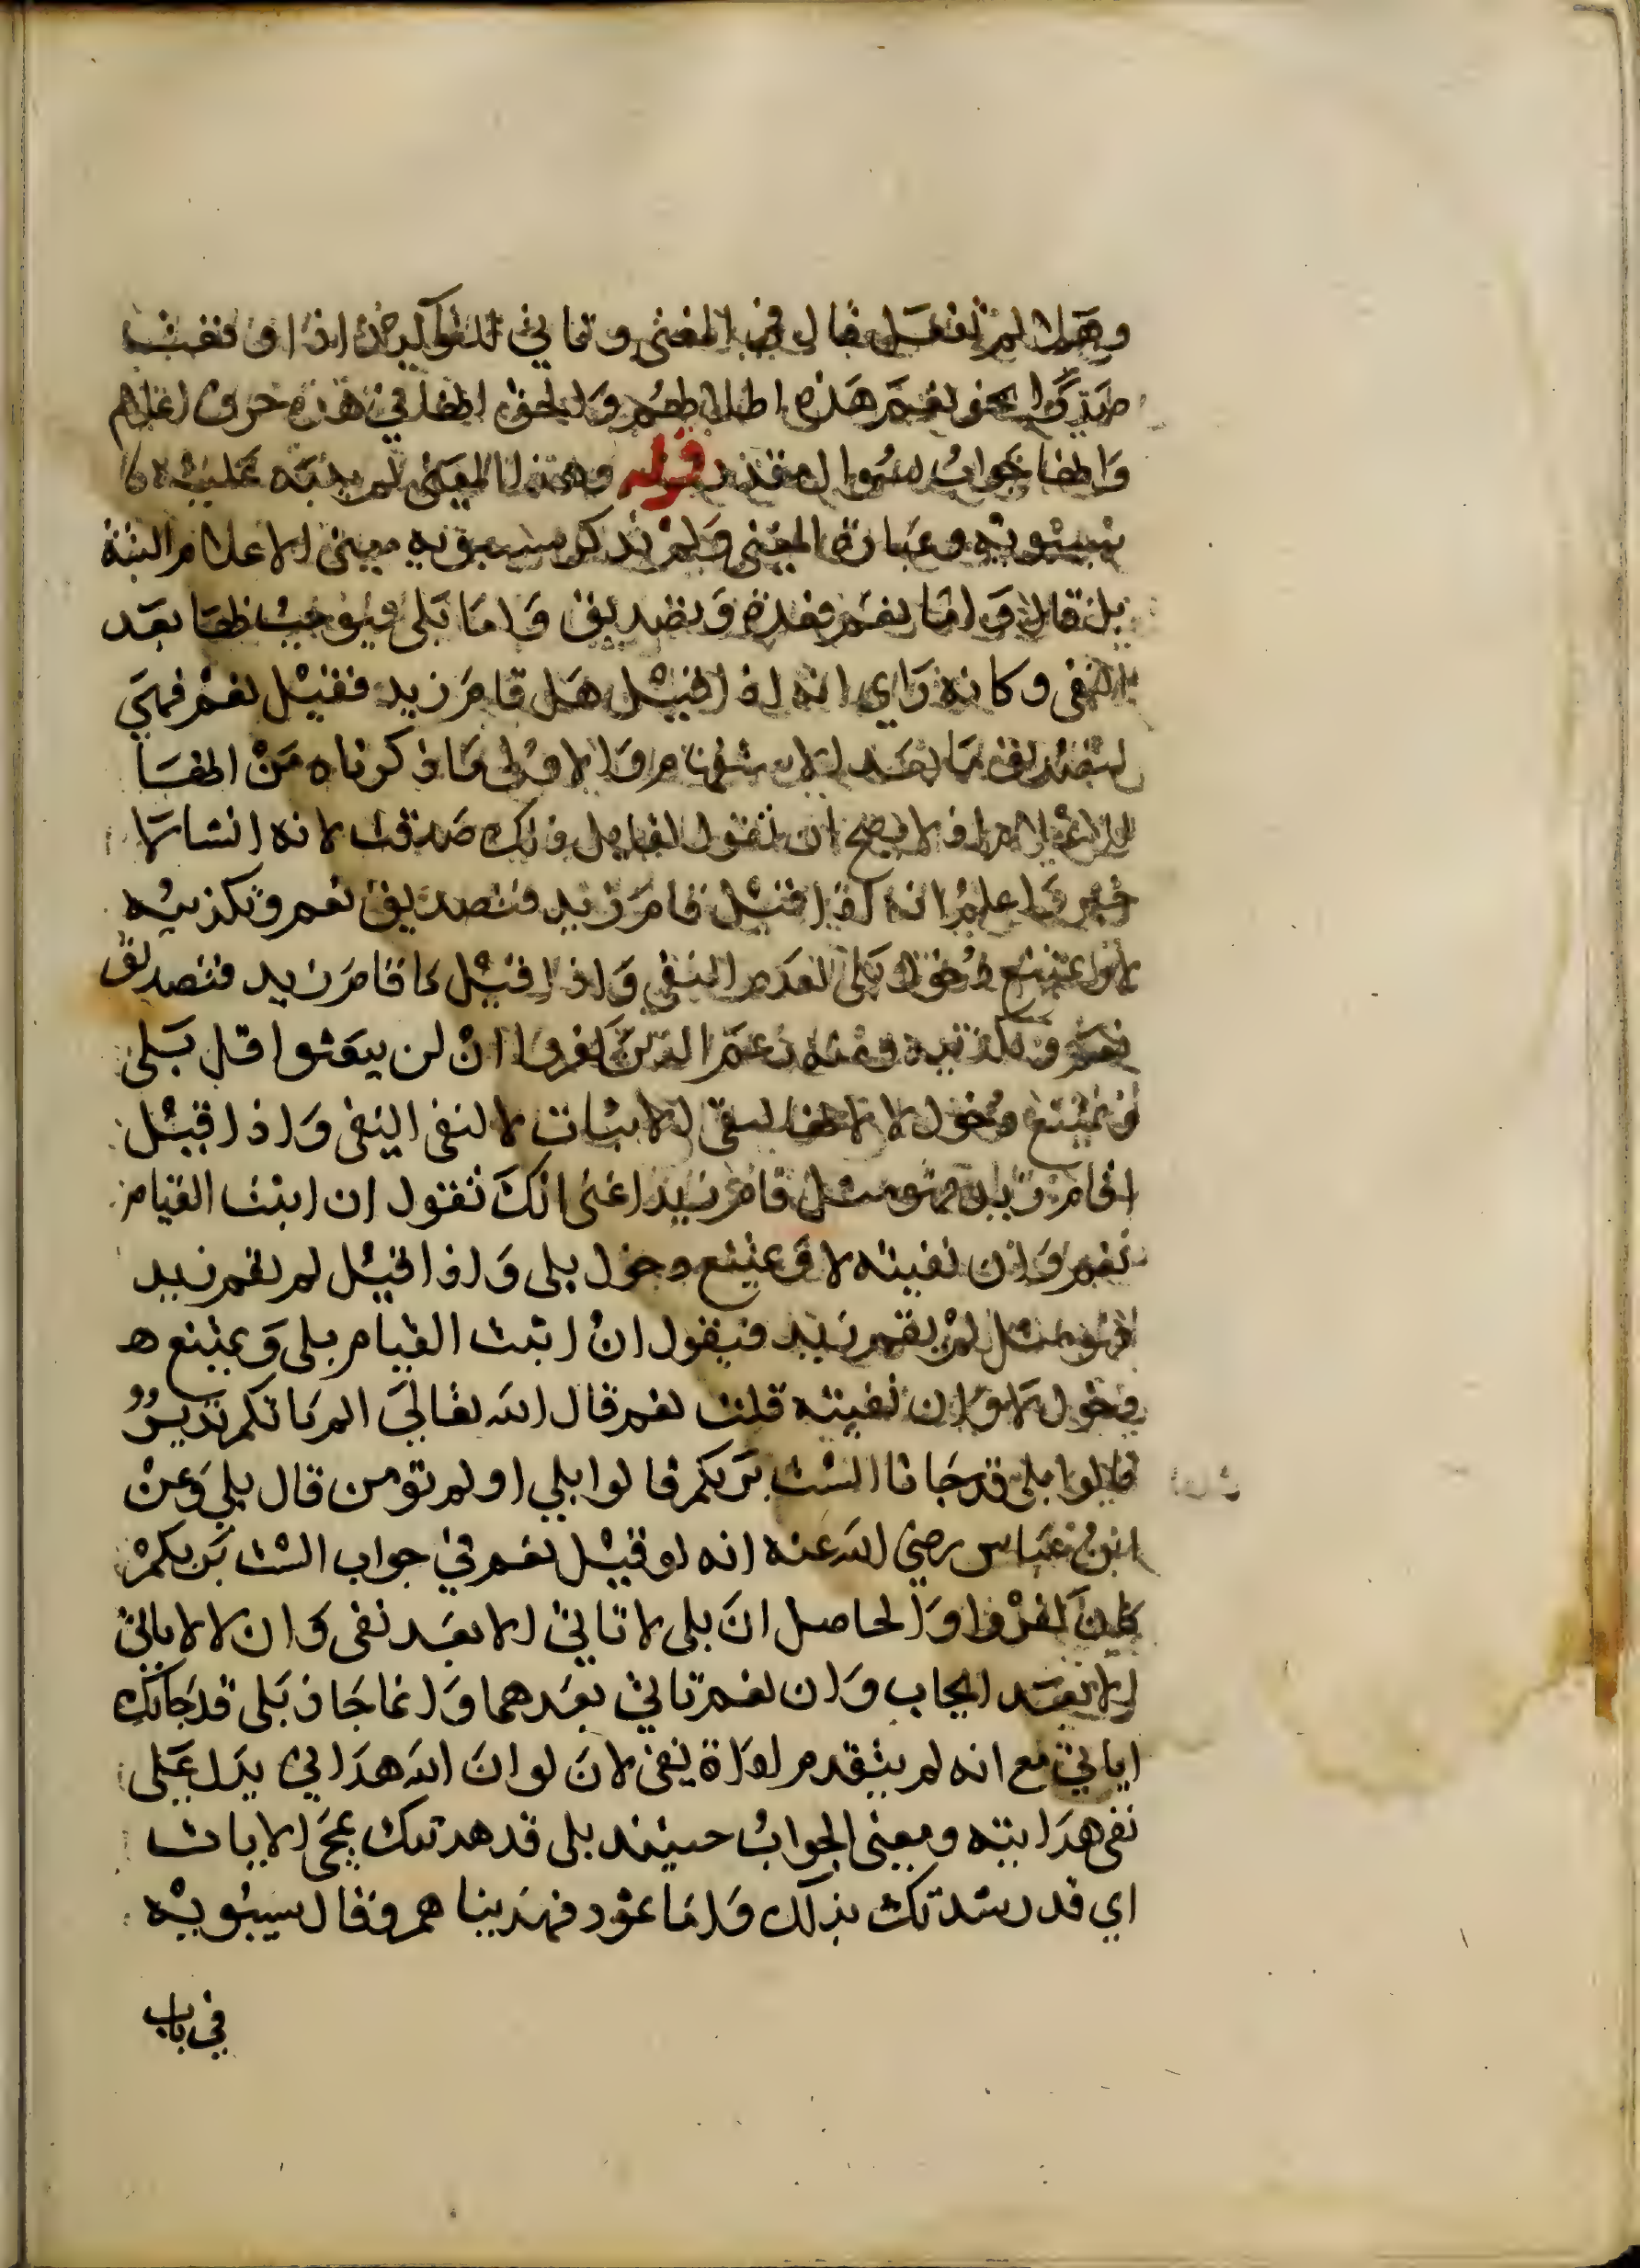 وهلا لم تفعل قال في المغني وتاتي للتوكيد اذا وقعت
صدرا نحو نعم هذه اطلالهم والحق انها في هذه حرف اعلام
وانها جواب لسوال مقدر قوله وهذا المعنى لم ينبه عليه
سيبويه وعبارة المغني ولم يذكر سيبويه معنى الاعلام البتة
بل قال واما نعم فعدة وتصديق واما بلى فيوجب بها بعد
النفي وكانه راي انه اذا قيل هل قام زيد فقيل نعم فهي
لتصديق ما بعد الاستفهام والاولى ما ذكرناه من انها
للاعلام اذ لا يصح ان تقول لقايل ذلك صدقت لانه انشا لا
خبر واعلم انه اذا قيل قام زيد فتصديق نعم وتكذيبه
لا ويمتنع دخول بلى لعدم النفي واذا قيل ما قام زيد فتصديق
نعم وتكذيبه ومنه زعم الذين كفروا ان لن يبعثوا قل بلى
ويمتنع دخول لا لانها لنفي الاثبات لا لنفي النفي واذا قيل
اقام زيد فهو مثل قام زيد اعني انك تقول ان اثبت القيام
نعم وان نفيته لا ويمتنع دخول بلى واذا قيل لم يقم زيد
فهو مثل لم يقم زيد فيقول ان اثبت القيام بلى ويمتنع
دخول لا وان نفيته قلت نعم قال الله تعالى الم ياتكم نذير
قالوا بلى قد جانا الست بربكم قالوا بلى اولم تومن قال بلى وعن
ابن عباس رضي الله عنه انه لو قيل نعم في جواب الست بربكم
كان كفرا والحاصل ان بلى لا تاتي الا بعد نفي وان لا لا ياتي
الا بعد ايجاب وان نعم تاتي بعدهما وانما جاز بلى قد جاتك
اياتي مع انه لم يتقدم اداة نفي لان لو ان الله هداني يدل على
نفي هدايته ومعنى الجواب حينئذ بلى قد هديتك بمجي الايات
اي قد رشدتك بذلك واما ثمود فهديناهم وقال سيبويه
في باب